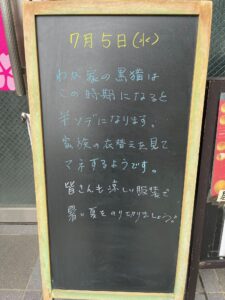 7月5日(水)
わが家の黒猫は
この時期になると
半ソデになります。
家族の衣替えを見て
マネするようです。
皆さんも涼しい服装で
暑い夏をのりきりましょう!